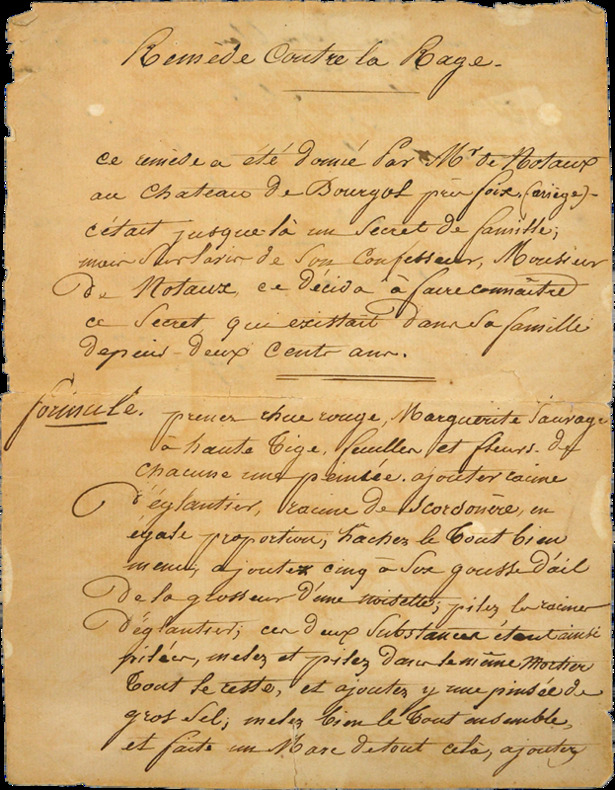 Remède Contre la Rage.
ce remède a été donné Par Mr de Notaux
au Chateau de Bourgol près foix, (ariège)-
c'était jusque là un Secret de famille;
mais Sur lavis de Son Confesseur, Monsieur
De Notaux, ce décida à faire connaître
ce Secret qui existait Dans Sa famille
depuis deux Cents ans.
formule. prenez rhue rouge, Marguerite Sauvage
à haute Tige, feuilles et fleurs. de
chacune une pensée. ajouter racine
D'églantier, racine de Scorsonère, en
égale proportion, hâchez le Tout bien
menu, ajoutez cinq à Six gousse d'ail
De la grosseur d'une noisette; pilez la racine
D'églantier; ces deux Substances étant ainsi
pilées, melez et pilez Dans le même Mortier
Tout le reste, et ajoutez y une pinsée de
gros Sel; melez bien le Tout ensemble,
et faite un Marc de tout cela, ajoutez